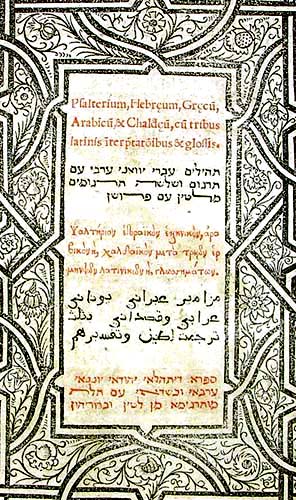 Psalterium, Hebręum, Gręcū,
Arabicū, & Chaldęū, cū tribus
latinis īterp̄tatōibus & glossis.
תהילים עברי יוואני ערבי עם
תרגום ושלשה תרגומים
מלטין עם פרושן
Ψαλτήριον ἑβραϊκὸν ἑλληνικὸν, ἀρα
βικὸν κ, χαλδαϊκὸν μετὰ τριῶν ἑρ
μηνειῶν λατινικῶν κ, γλωσημάτων.
مزامير عبراني يوناني
عرابي وقصداني بثلث
ترجمت لطين وتفسيرهم
ספרא דיתהלאי יהודאי יוונאי
ערבאי וכשדאי עם תלת
מותרגימא מן לטין